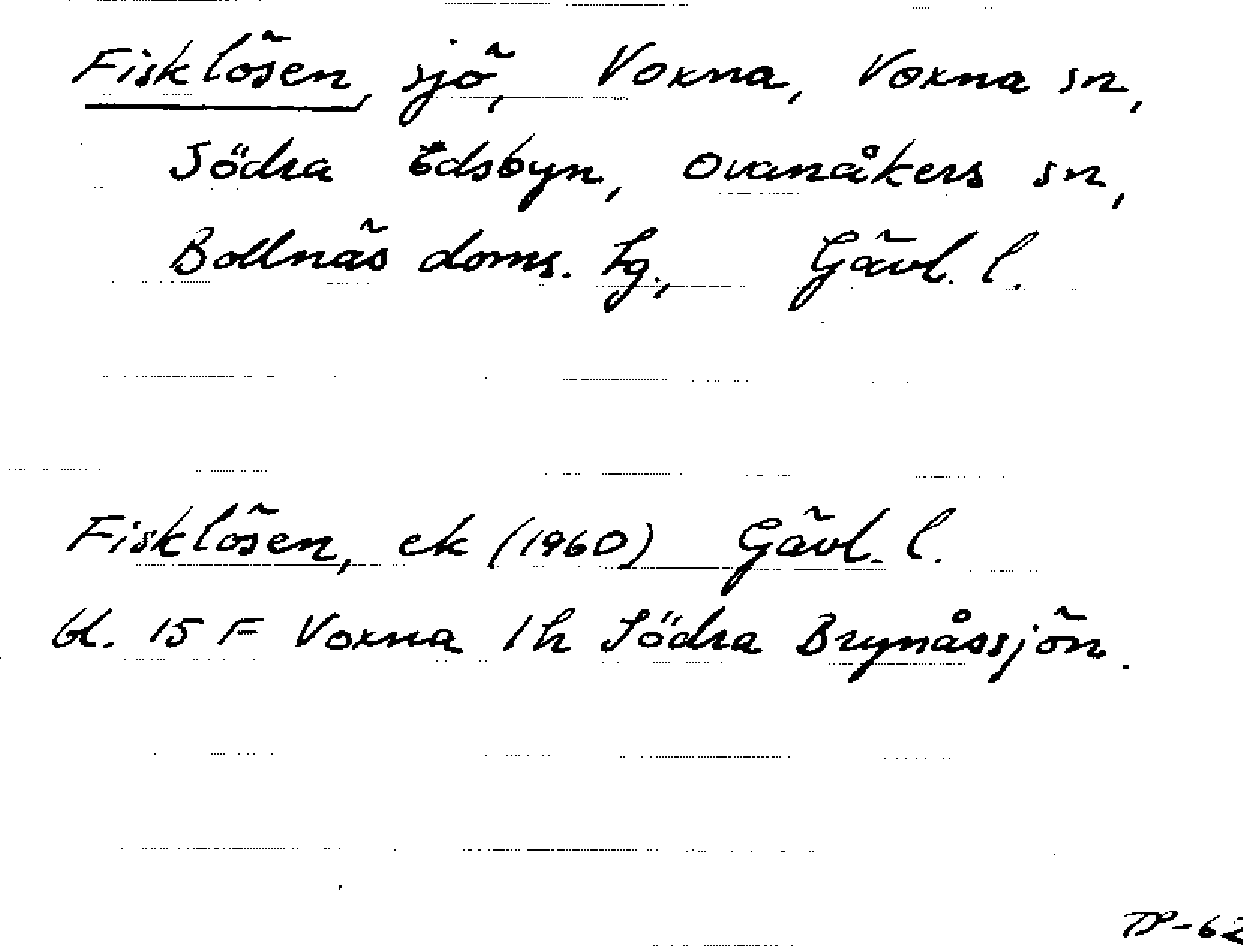 Fisklösen, sjö, Voxna, Voxna sn,
Södra Edsbyn, Ovanåkers sn,
Bollnäs doms. hg., Gävl. l.
Fisklösen, ek (1960) Gävl. l.
bl. 15 F Voxna 1h Södra Brynåssjön.
TP-62